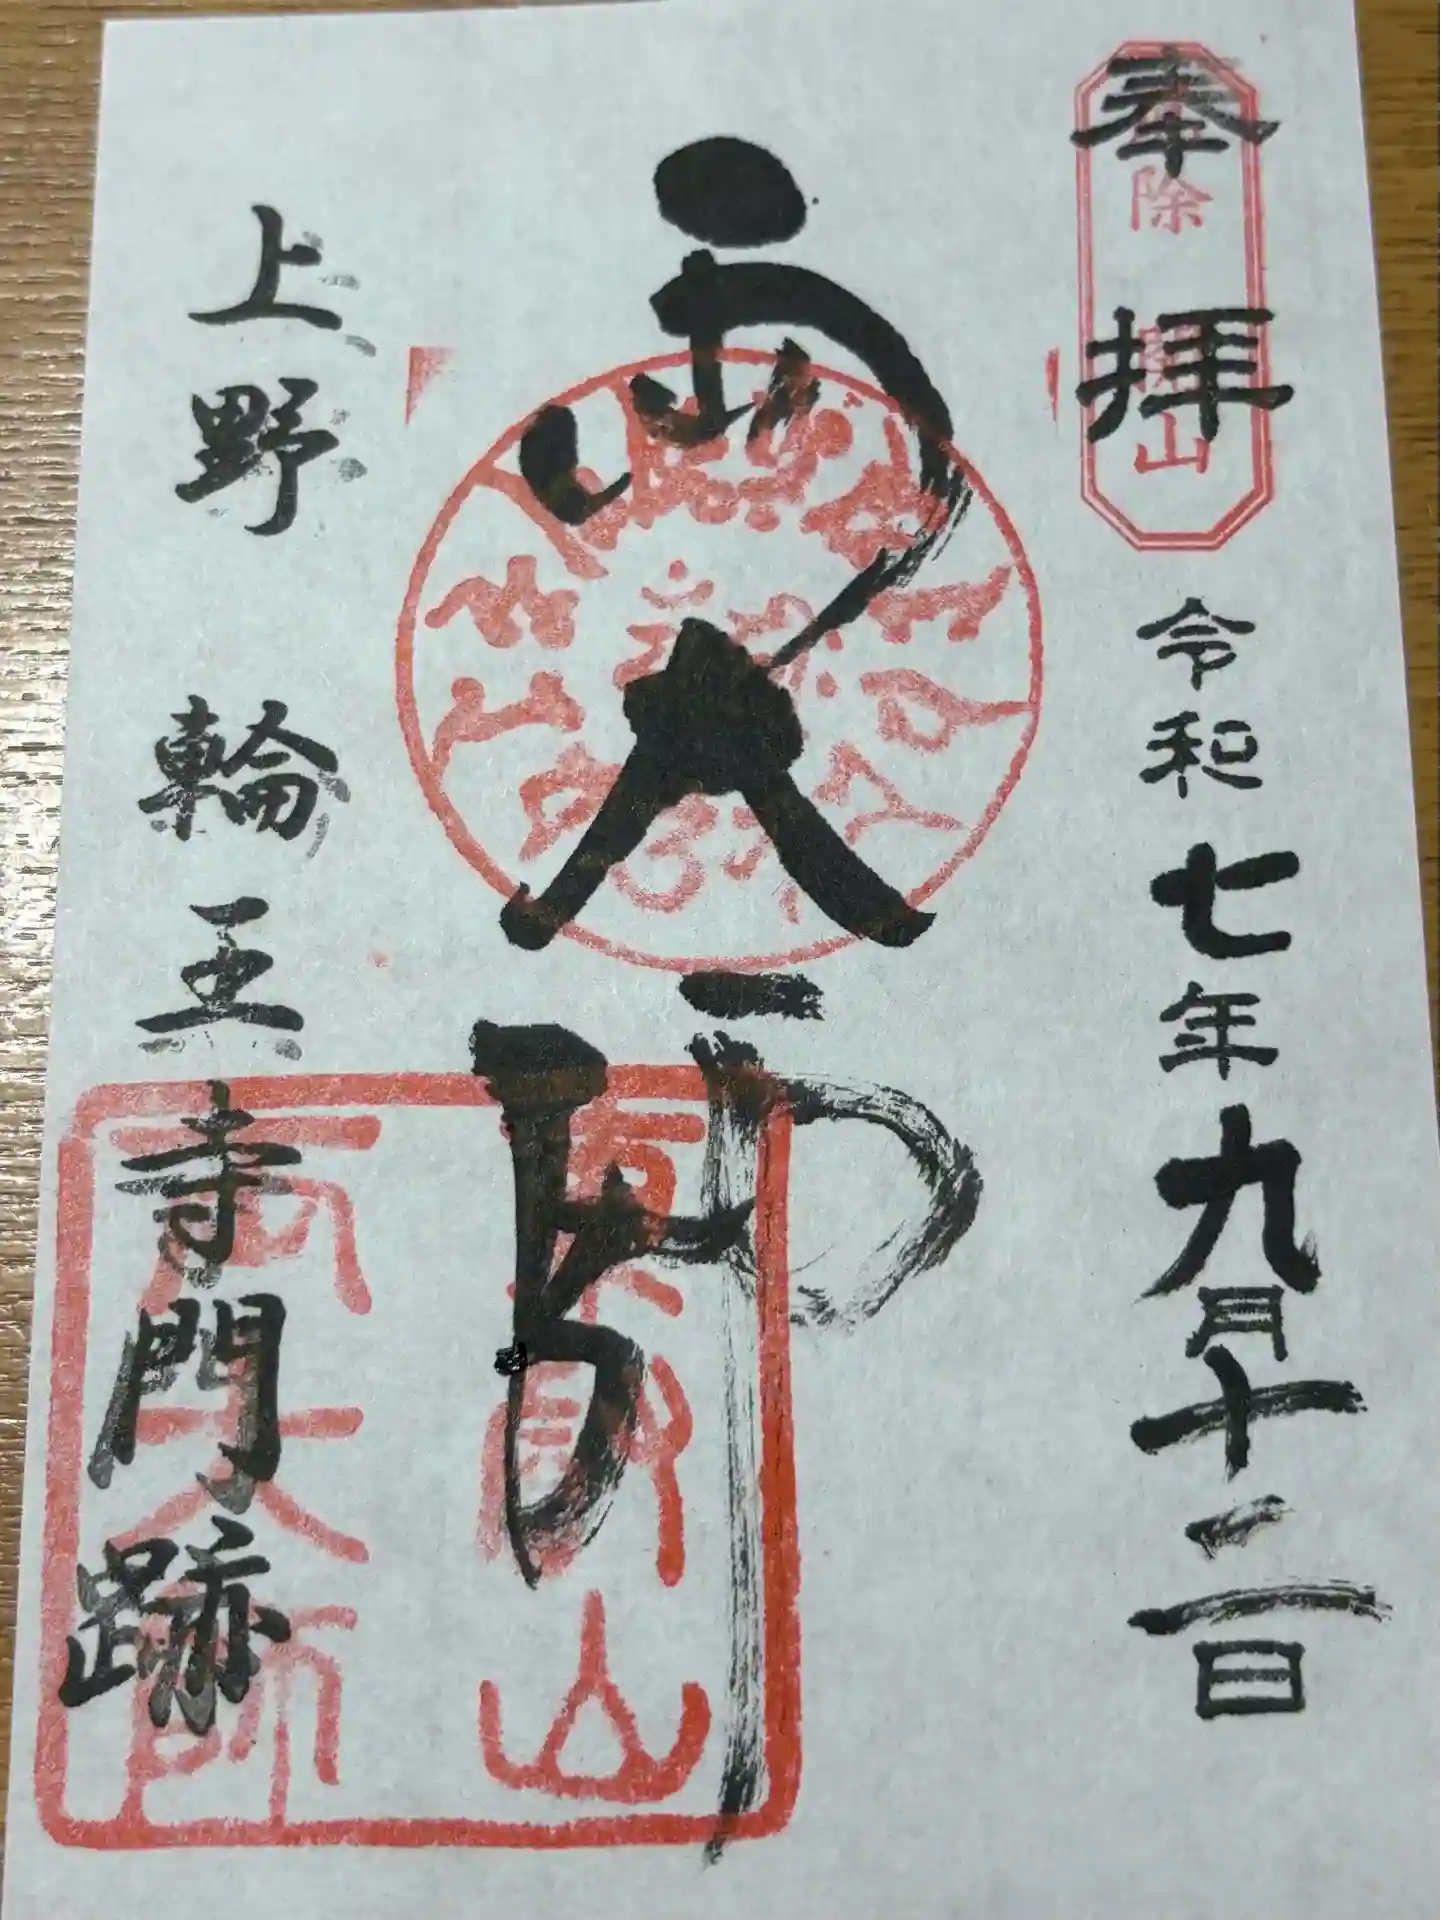 奉拝
令和七年九月十二日
両大師
上野 輪王寺門跡
東叡山
両大師